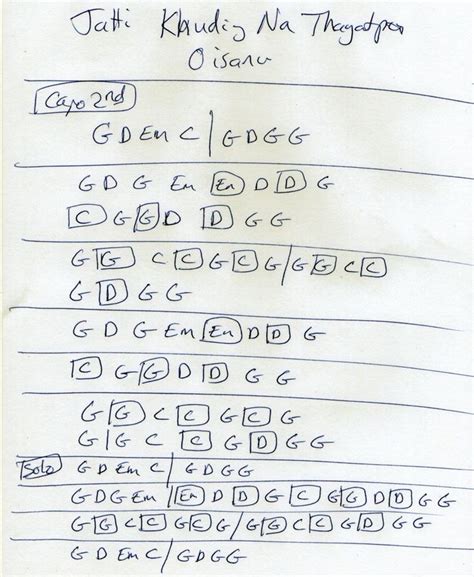 Jatti Khudig Na Thagatpor
Oisanu
Capo 2nd
G D Em C | G D G G
G D G Em Em D D G
C G G D D G G
G G C C G C G / G G C C
G D G G
G D G Em Em D D G
C G G D D G G
G G C C G C G
G | G C C G D G G
Solo G D Em C / G D G G
G D G Em / Em D D G C G G D D G G
G G C C G C G / G G C C G D G G
G D Em C / G D G G